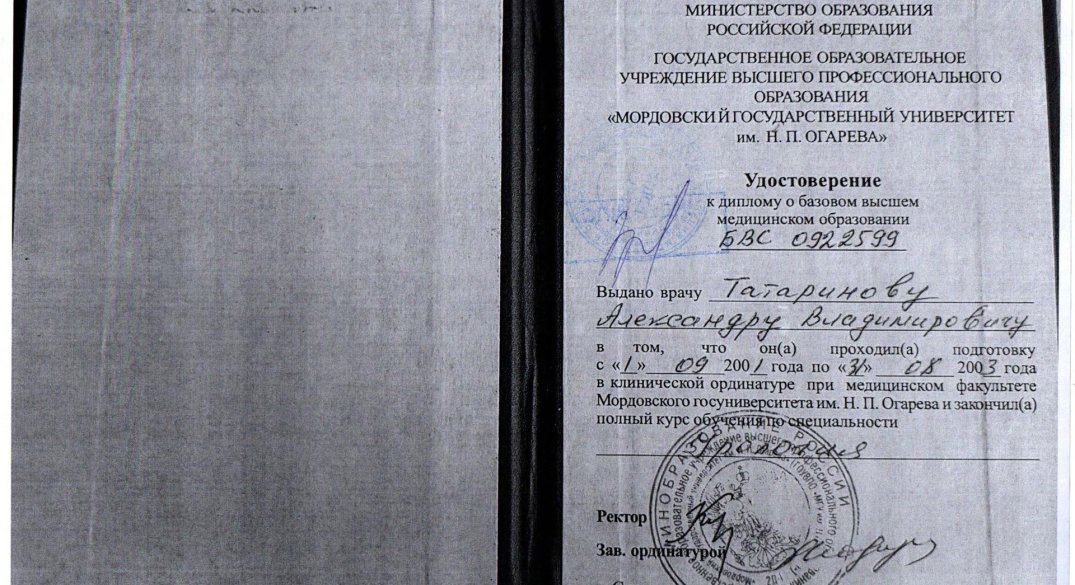 МИНИСТЕРСТВО ОБРАЗОВАНИЯ
РОССИЙСКОЙ ФЕДЕРАЦИИ
ГОСУДАРСТВЕННОЕ ОБРАЗОВАТЕЛЬНОЕ
УЧРЕЖДЕНИЕ ВЫСШЕГО ПРОФЕССИОНАЛЬНОГО
ОБРАЗОВАНИЯ
«МОРДОВСКИЙ ГОСУДАРСТВЕННЫЙ УНИВЕРСИТЕТ
им. Н. П. ОГАРЕВА»
Удостоверение
к диплому о базовом высшем
медицинском образовании
БВС 0922599
Выдано врачу Татаринову
Александру Владимировичу
в том, что он(а) проходил(а) подготовку
с «1» 09 2001 года по «31» 08 2003 года
в клинической ординатуре при медицинском факультете
Мордовского госуниверситета им. Н. П. Огарева и закончил(а)
полный курс обучения по специальности
Урология
МИНОБРАЗОВАНИЕ РОССИИ
Ректор
Зав. ординатурой